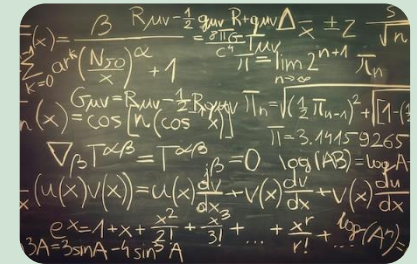 β Rμν - 1/2 gμν R + gμν Δ = x ± z
= 8πG/c⁴ Tμν
Σ k=0 ark (N₅₀/x)^α + 1
π = lim 2^n+1 πn
n→∞
Gμν = Rμν - 1/2 Rgμν
(x) = cos [n(cos x)]
πn = √(1/2 πn-1)² + [1-(
π = 3.14159265
∇β T^αβ = T^αβ ;β = 0
log(AB) = logA
(u(x)v(x)) = u(x) dv/dx + v(x) dv/dx + v(x) du/dx
e x = 1 + x + x²/2! + x³/3! + ... + x^r/r! + ...
log(Aⁿ) =
3A = 3sinA - 4sin³A